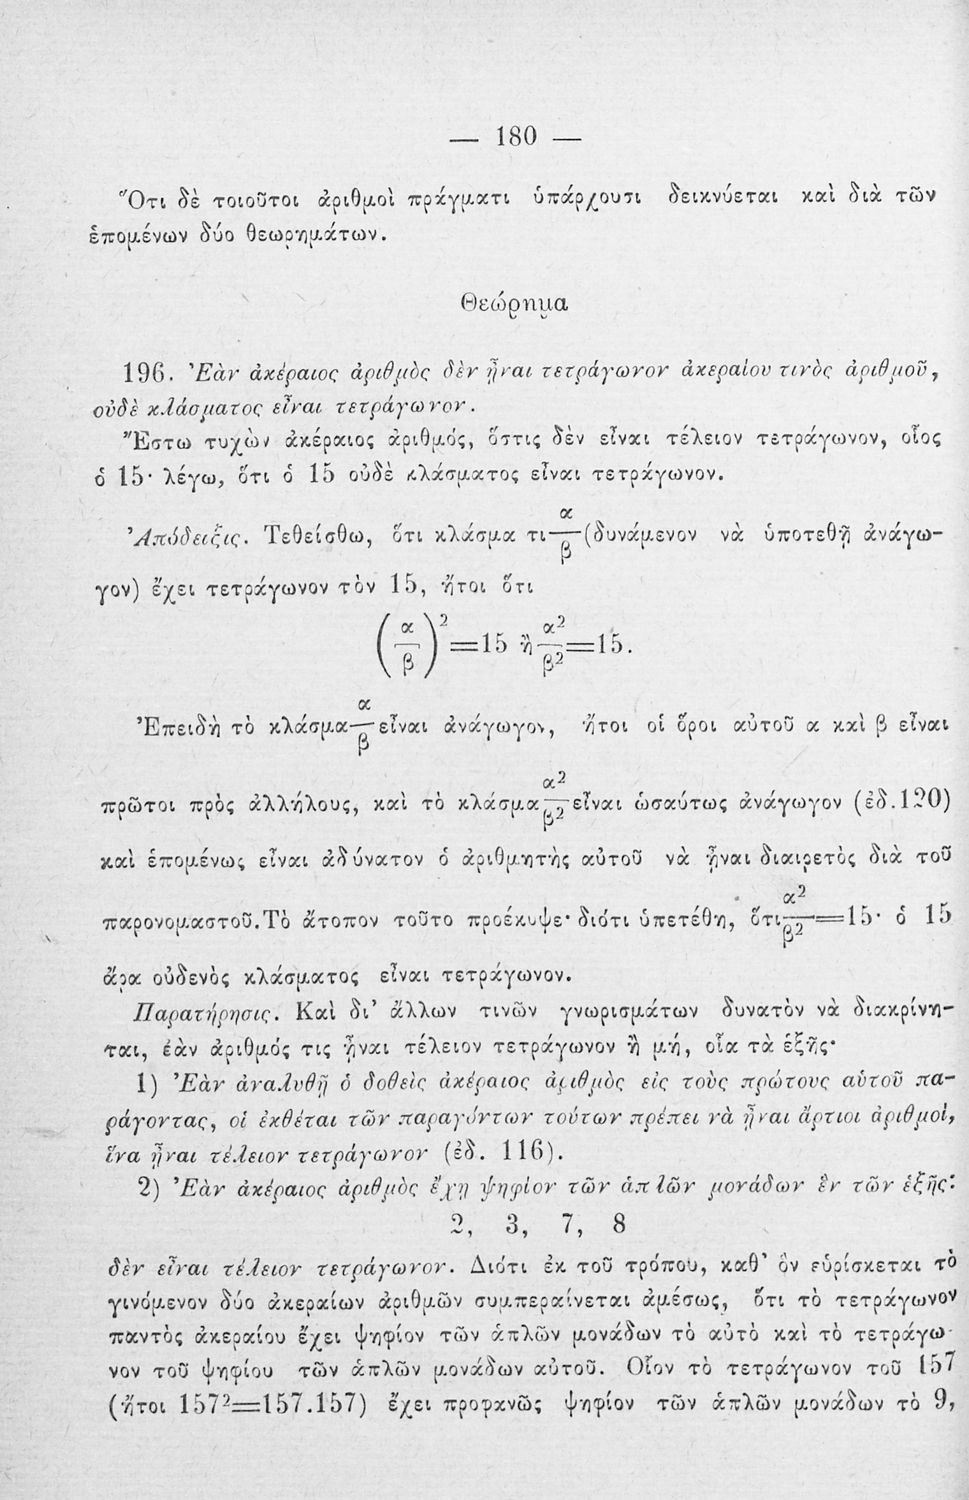 — 180 —
Ὅτι δὲ τοιοῦτοι ἀριθμοὶ πράγματι ὑπάρχουσι δεικνύεται καὶ διὰ τῶν
ἑπομένων δύο θεωρημάτων.
Θεώρημα
196. Ἐὰν ἀκέραιος ἀριθμὸς δὲν ᾖναι τετράγωνον ἀκεραίου τινὸς ἀριθμοῦ,
οὐδὲ κλάσματος εἶναι τετράγωνον.
Ἔστω τυχὼν ἀκέραιος ἀριθμός, ὅστις δὲν εἶναι τέλειον τετράγωνον, οἷος
ὁ 15· λέγω, ὅτι ὁ 15 οὐδὲ κλάσματος εἶναι τετράγωνον.
Ἀπόδειξις. Τεθείσθω, ὅτι κλάσμα τι α/β (δυνάμενον νὰ ὑποτεθῇ ἀνάγω-
γον) ἔχει τετράγωνον τὸν 15, ἤτοι ὅτι
(α/β)²=15 ἢ α²/β²=15.
Ἐπειδὴ τὸ κλάσμα α/β εἶναι ἀνάγωγον, ἤτοι οἱ ὅροι αὐτοῦ α καὶ β εἶναι
πρῶτοι πρὸς ἀλλήλους, καὶ τὸ κλάσμα α²/β² εἶναι ὡσαύτως ἀνάγωγον (ἐδ.120)
καὶ ἑπομένως εἶναι ἀδύνατον ὁ ἀριθμητὴς αὐτοῦ νὰ ᾖναι διαιρετὸς διὰ τοῦ
παρονομαστοῦ. Τὸ ἄτοπον τοῦτο προέκυψε· διότι ὑπετέθη, ὅτι α²/β²=15· ὁ 15
ἄρα οὐδενὸς κλάσματος εἶναι τετράγωνον.
Παρατήρησις. Καὶ δι' ἄλλων τινῶν γνωρισμάτων δυνατὸν νὰ διακρίνη-
ται, ἐὰν ἀριθμός τις ᾖναι τέλειον τετράγωνον ἢ μή, οἷα τὰ ἑξῆς·
1) Ἐὰν ἀναλυθῇ ὁ δοθεὶς ἀκέραιος ἀριθμὸς εἰς τοὺς πρώτους αὐτοῦ πα-
ράγοντας, οἱ ἐκθέται τῶν παραγόντων τούτων πρέπει νὰ ᾖναι ἄρτιοι ἀριθμοί,
ἵνα ᾖναι τέλειον τετράγωνον (ἐδ. 116).
2) Ἐὰν ἀκέραιος ἀριθμὸς ἔχῃ ψηφίον τῶν ἁπλῶν μονάδων ἓν τῶν ἑξῆς:
2, 3, 7, 8
δὲν εἶναι τέλειον τετράγωνον. Διότι ἐκ τοῦ τρόπου, καθ' ὃν εὑρίσκεται τὸ
γινόμενον δύο ἀκεραίων ἀριθμῶν συμπεραίνεται ἀμέσως, ὅτι τὸ τετράγωνον
παντὸς ἀκεραίου ἔχει ψηφίον τῶν ἁπλῶν μονάδων τὸ αὐτὸ καὶ τὸ τετράγω-
νον τοῦ ψηφίου τῶν ἁπλῶν μονάδων αὐτοῦ. Οἷον τὸ τετράγωνον τοῦ 157
(ἤτοι 157²=157.157) ἔχει προφανῶς ψηφίον τῶν ἁπλῶν μονάδων τὸ 9,